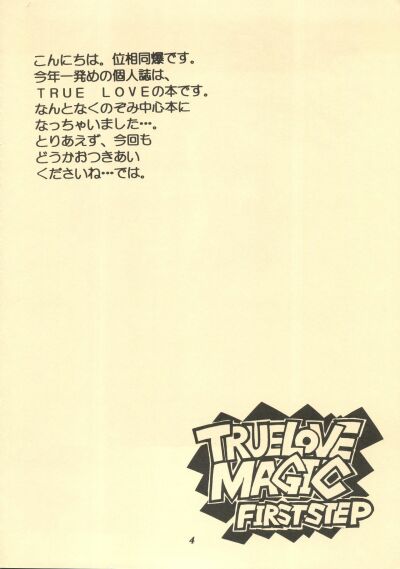 こんにちは。位相同爆です。
今年一発めの個人誌は、
ＴＲＵＥ　ＬＯＶＥの本です。
なんとなくのぞみ中心本に
なっちゃいました…。
とりあえず、今回も
どうかおつきあい
くださいね…では。
TRUE LOVE
MAGIC
FIRST STEP
4